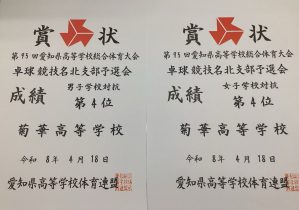 賞状
第95回愛知県高等学校総合体育大会
卓球競技名北支部予選会
男子学校対抗
成績 第4位
菊華高等学校
令和 8年 4月 18日
愛知県高等学校体育連盟
賞状
第95回愛知県高等学校総合体育大会
卓球競技名北支部予選会
女子学校対抗
成績 第4位
菊華高等学校
令和 8年 4月 18日
愛知県高等学校体育連盟